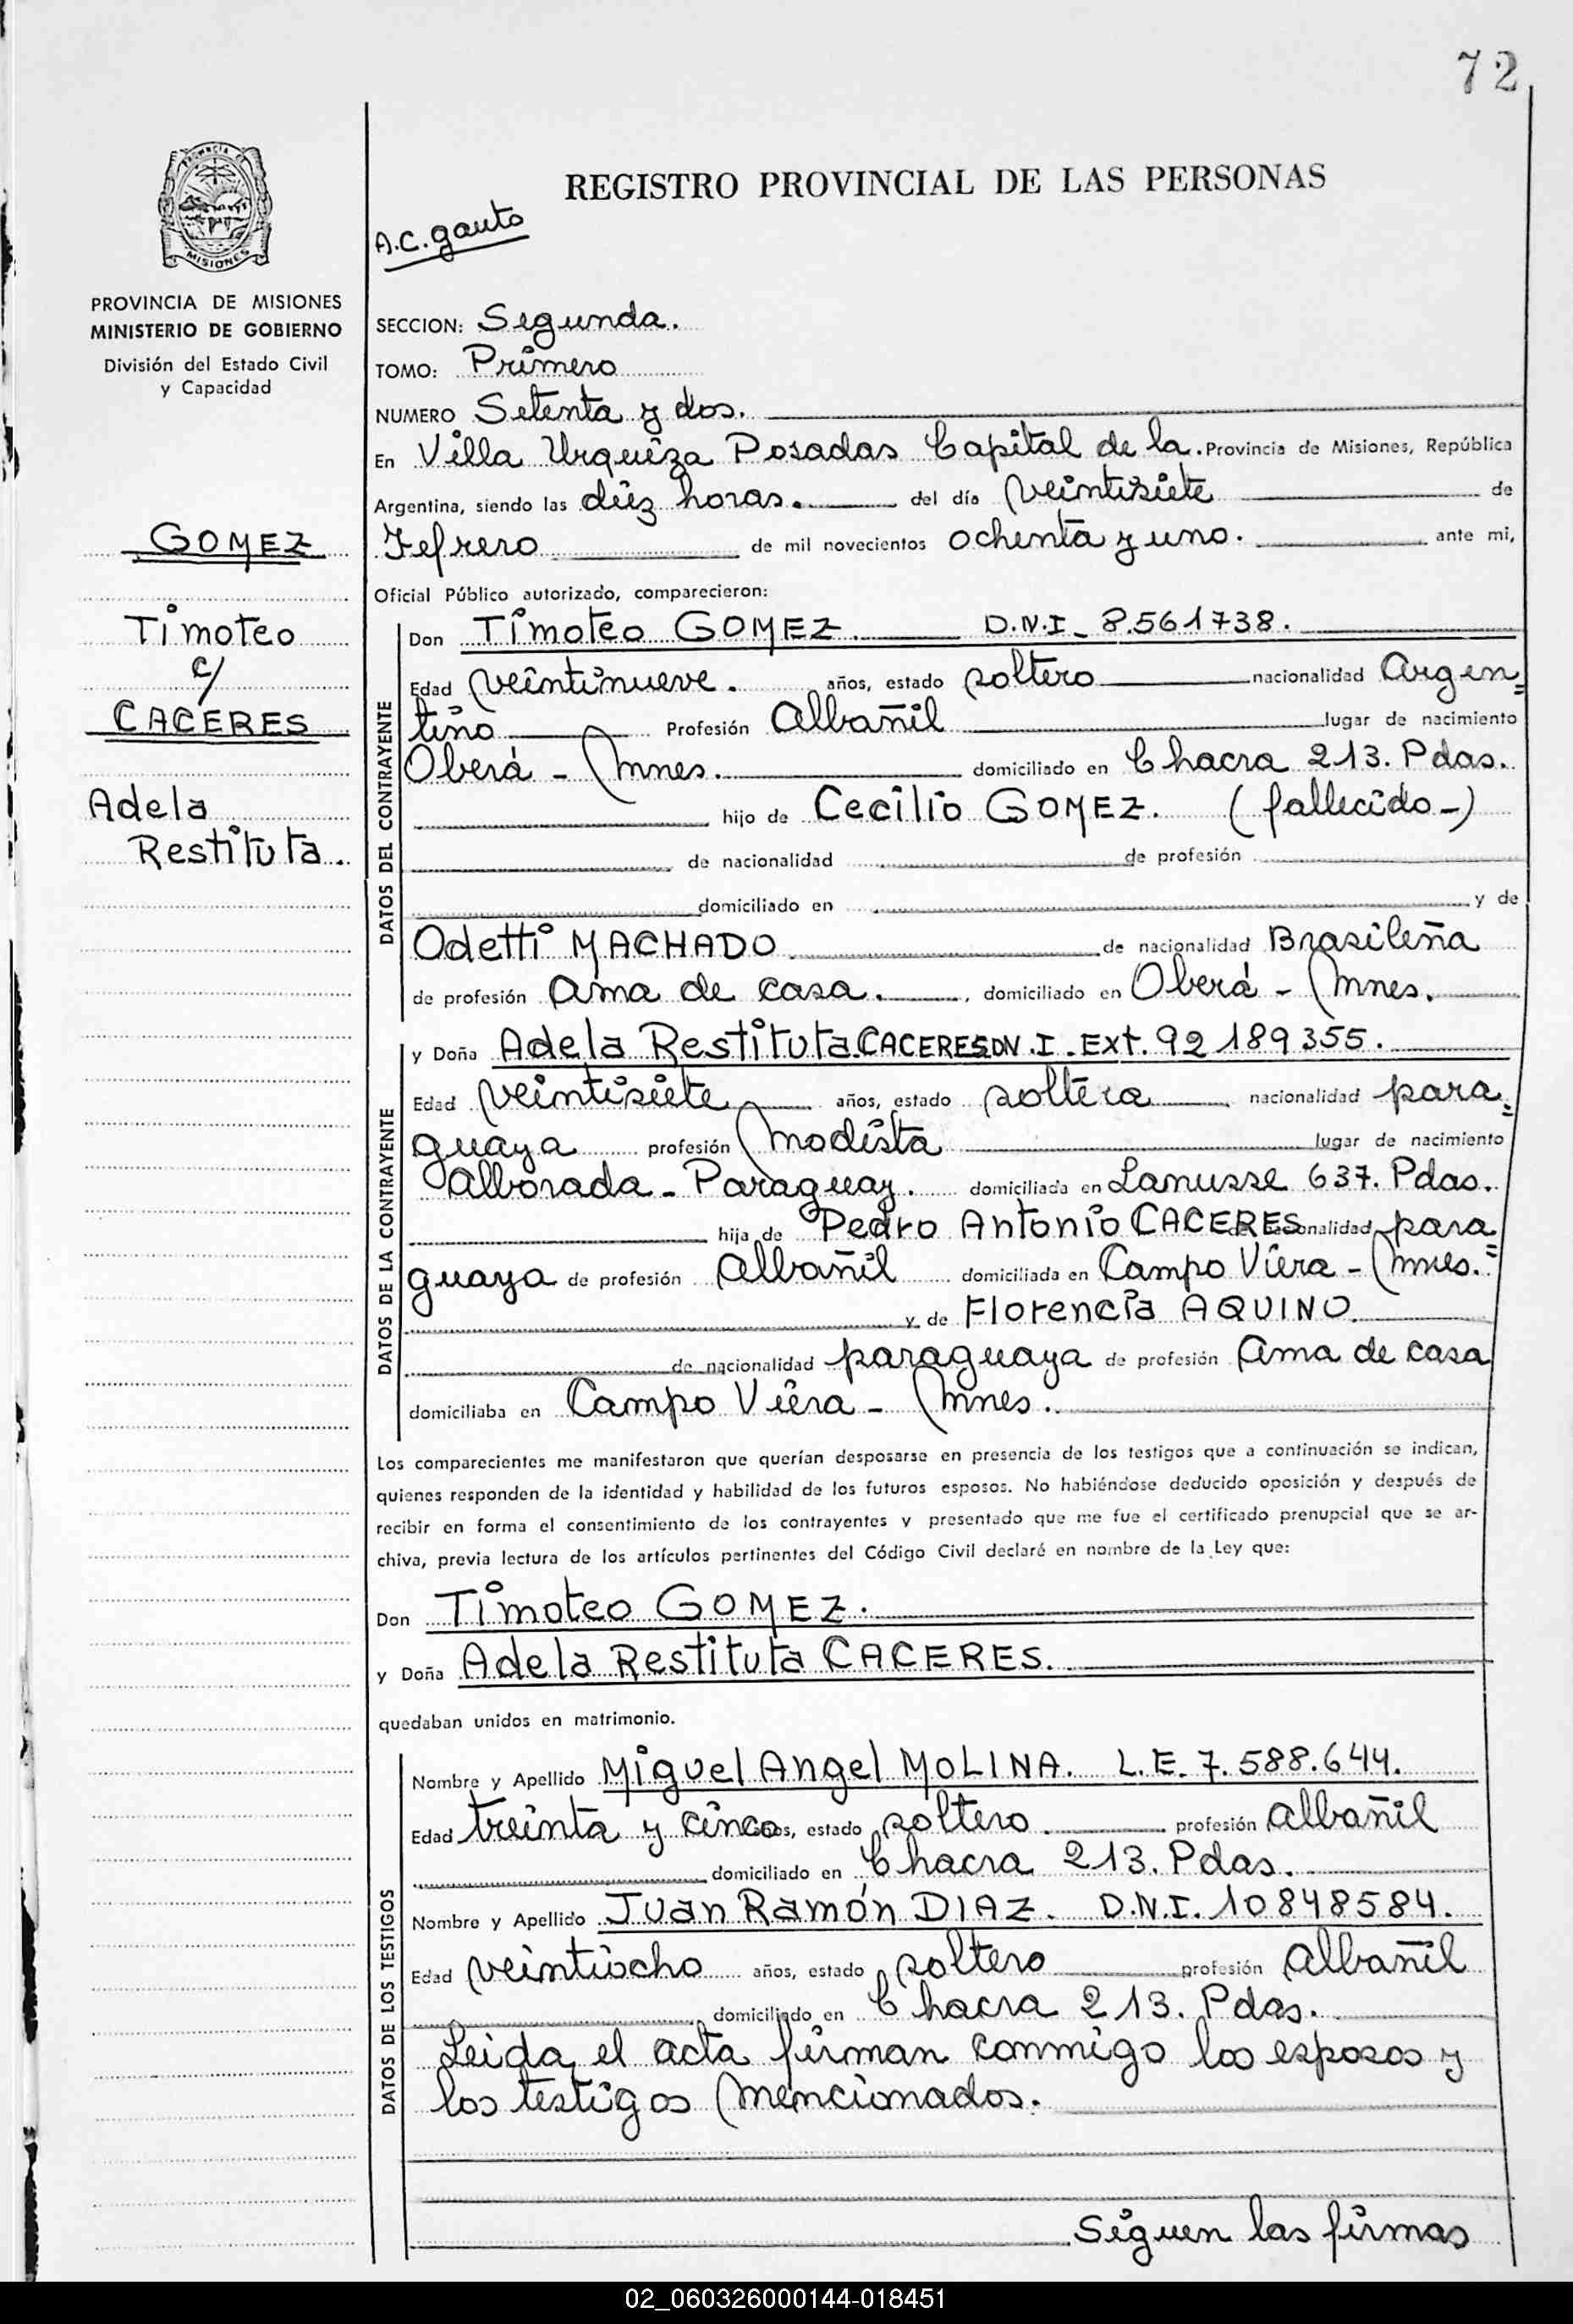 72
PROVINCIA DE
MISIONES
REGISTRO PROVINCIAL DE LAS PERSONAS
A.C. gauto
PROVINCIA DE MISIONES
MINISTERIO DE GOBIERNO
División del Estado Civil
y Capacidad
GOMEZ
Timoteo
c/
CACERES
Adela
Restituta.
SECCION: Segunda.
TOMO: Primero
NUMERO Setenta y dos.
En Villa Urquiza Posadas Capital de la. Provincia de Misiones, República
Argentina, siendo las diez horas. del día veintisiete de
Febrero de mil novecientos ochenta y uno. ante mi,
Oficial Público autorizado, comparecieron:
DATOS DEL CONTRAYENTE
Don Timoteo GOMEZ. D.N.I_ 8.561738.
Edad veintinueve. años, estado soltero nacionalidad Argen=
tino Profesión Albañil lugar de nacimiento
Oberá - Mnes. domiciliado en Chacra 213. Pdas.
hijo de Cecilio GOMEZ. (fallecido-)
de nacionalidad de profesión
domiciliado en y de
Odetti MACHADO de nacionalidad Brasileña
de profesión Ama de casa. , domiciliado en Oberá - Mnes.
DATOS DE LA CONTRAYENTE
y Doña Adela Restituta CACERES DN.I. Ext. 92 189355.
Edad veintisiete años, estado soltera nacionalidad para=
guaya profesión Modista lugar de nacimiento
Alborada - Paraguay. domiciliada en Lanusse 637. Pdas.
hija de Pedro Antonio CACERES de nacionalidad para=
guaya de profesión Albañil domiciliada en Campo Viera - Mnes.
y de Florencia AQUINO.
de nacionalidad paraguaya de profesión Ama de casa
domiciliaba en Campo Viera - Mnes.
Los comparecientes me manifestaron que querían desposarse en presencia de los testigos que a continuación se indican,
quienes responden de la identidad y habilidad de los futuros esposos. No habiéndose deducido oposición y después de
recibir en forma el consentimiento de los contrayentes y presentado que me fue el certificado prenupcial que se ar-
chiva, previa lectura de los artículos pertinentes del Código Civil declaré en nombre de la Ley que:
Don Timoteo GOMEZ.
y Doña Adela Restituta CACERES.
quedaban unidos en matrimonio.
DATOS DE LOS TESTIGOS
Nombre y Apellido Miguel Angel MOLINA. L.E. 7.588.644.
Edad treinta y cinco años, estado soltero. profesión Albañil
domiciliado en Chacra 213. Pdas.
Nombre y Apellido Juan Ramón DIAZ. D.N.I. 10848584.
Edad veintiocho años, estado soltero profesión Albañil
domiciliado en Chacra 213. Pdas.
Leida el acta firman conmigo los esposos y
los testigos mencionados.
Siguen las firmas
02_060326000144-018451